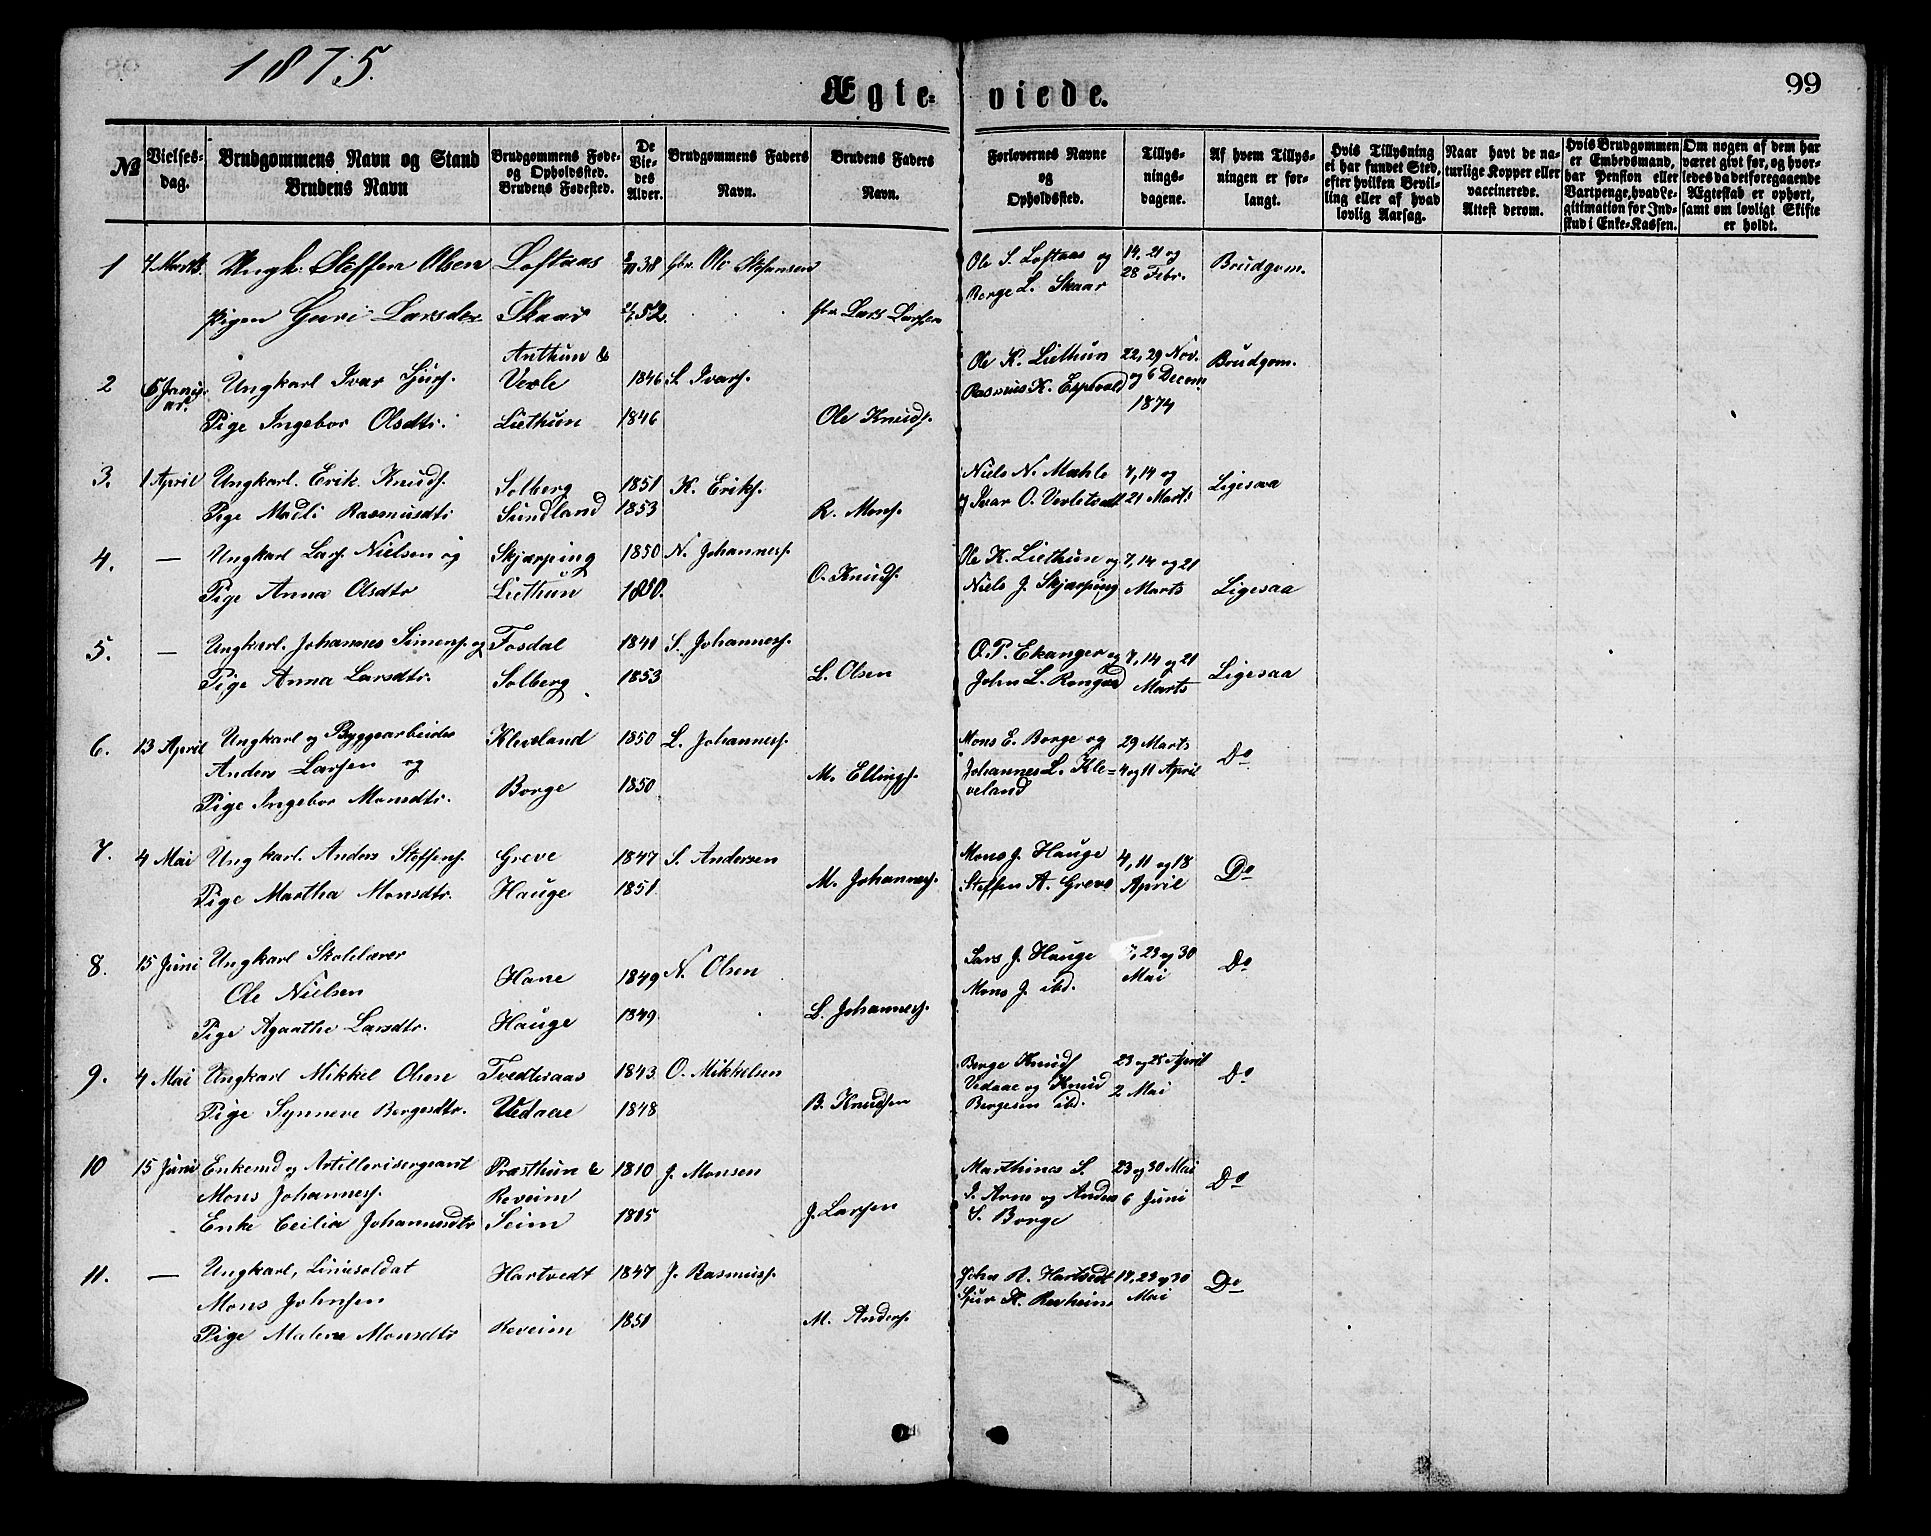 1875.
Ægte=viede.
99
No
Vielses-
dag.
Brudgommens Navn og Stand
Brudens Navn
Brudgommens Føde-
og Opholdssted.
Brudens Fødested.
De
Vie-
des
Alder.
Brudgommens Faders
Navn.
Brudens Faders
Navn.
Forlovernes Navne
og
Opholdssted.
Tillys-
nings-
dagene.
Af hvem Tillys-
ningen er for-
langt.
Hvis Tillysning
ei har fundet Sted,
efter hvilken Bevil-
ling eller af hvad
lovlig Aarsag.
Naar havt de na-
turlige Kopper eller
vaccinerede.
Attest derom.
Hvis Brudgommen
er Embedsmand,
har Pension eller
Vartpenge, hvad Le-
gitimation for Ind-
skud i Enke-Kassen.
Om nogen af dem har
været givt før, og hvor-
ledes da det foregaaende
Ægteskab er ophørt,
samt om lovligt Skifte
er holdt.
1 4 Marts. Ungk. Steffen Olsen Loftaas 38 Ole Stefansen Ole S. Loftaas og 14, 21 og Brudgom.
Borge L. Skaar 28 Febr.
Pigen Guri Larsdtr Skaar 52. Lars Larsen
Arthun &
2 Ungkarl Ivar Sjurs. Vevle 1846 S. Ivars. Ole K. Liethun 22, 29 Nov. Brudgom.
Rasmus K. og 6 Decem
1874
Pige Ingebor Olsdtr. Liethun 1846 Ole Knuds.
3. 1 April Ungkarl. Erik Knuds. Solberg 1851 K. Eriks. Niels N. Mæhle 7, 14 og Ligesaa
Pige Madli Rasmusdtr Sundland 1853 R. Mons. og Ivar O. 21 Marts
4. — Ungkarl Lars. Nielsen og Skjærping 1850 N. Johannes. Ole K. Liethun og 7, 14 og 21
Pige Anna Olsdtr Liethun 1850. O. Knuds. Niels J. Skjærping Marts Ligesaa
5. — Ungkarl. Johannes Simens. og Fosdal 1841 S. Johannes. O. P. Ekanger og 7, 14 og 21
Pige Anna Larsdtr. Solberg 1853 L. Olsen John L. Marts Ligesaa
6. 13 April Ungkarl og Byggearbeider Kleveland 1850 L. Johannes. Mons E. Borge og 29 Marts Do
Anders Larsen og Johannes L. Kle= 4 og 11 April
Pige Ingebor Monsdtr. Borge 1850 M. Ellings. veland
7. 4 Mai Ungkarl. Anders Steffens. Greve 1847 S. Andersen Mons J. Hauge 4, 11 og 18 Do
Pige Martha Monsdtr. Hauge 1851 M. Johannes. Steffen A. Greve April
8. 15 Juni Ungkarl Skolelærer Lars J. Hauge 23 og 30 Do
Ole Nielsen Hane 1849 N. Olsen Mons J. ibd. Mai
Pige Agaathe Larsdtr. Hauge 1849 L. Johannes.
9. 4 Mai Ungkarl Mikkel Olsen Tvedteraas 1843 O. Mikkelsen Borge Knuds 23 og 25 April Do
Vedaae og Knud 2 Mai
Pige Synneve Borgesdtr. Vedaae 1848 B. Knudsen Borgesen ibd.
10 15 Juni Enkemd og Artillerisergeant Præsthun & 1810 J. Monsen Marthines S. 23 og 30 Mai Do
Mons Johannes. Reveim I. Arne og Anders 6 Juni
Enke Ceilia Johannesdtr Seim 1815 J. Larsen S. Borge
11. — Ungkarl, Liniesoldat Hartvedt 1847 J. Rasmus. John R. Hartvedt 17, 23 og 30 Do
Mons Johnsen Sjur K. Revheim Mai
Pige Malene Monsdtr Reveim 1851 M. Anders.